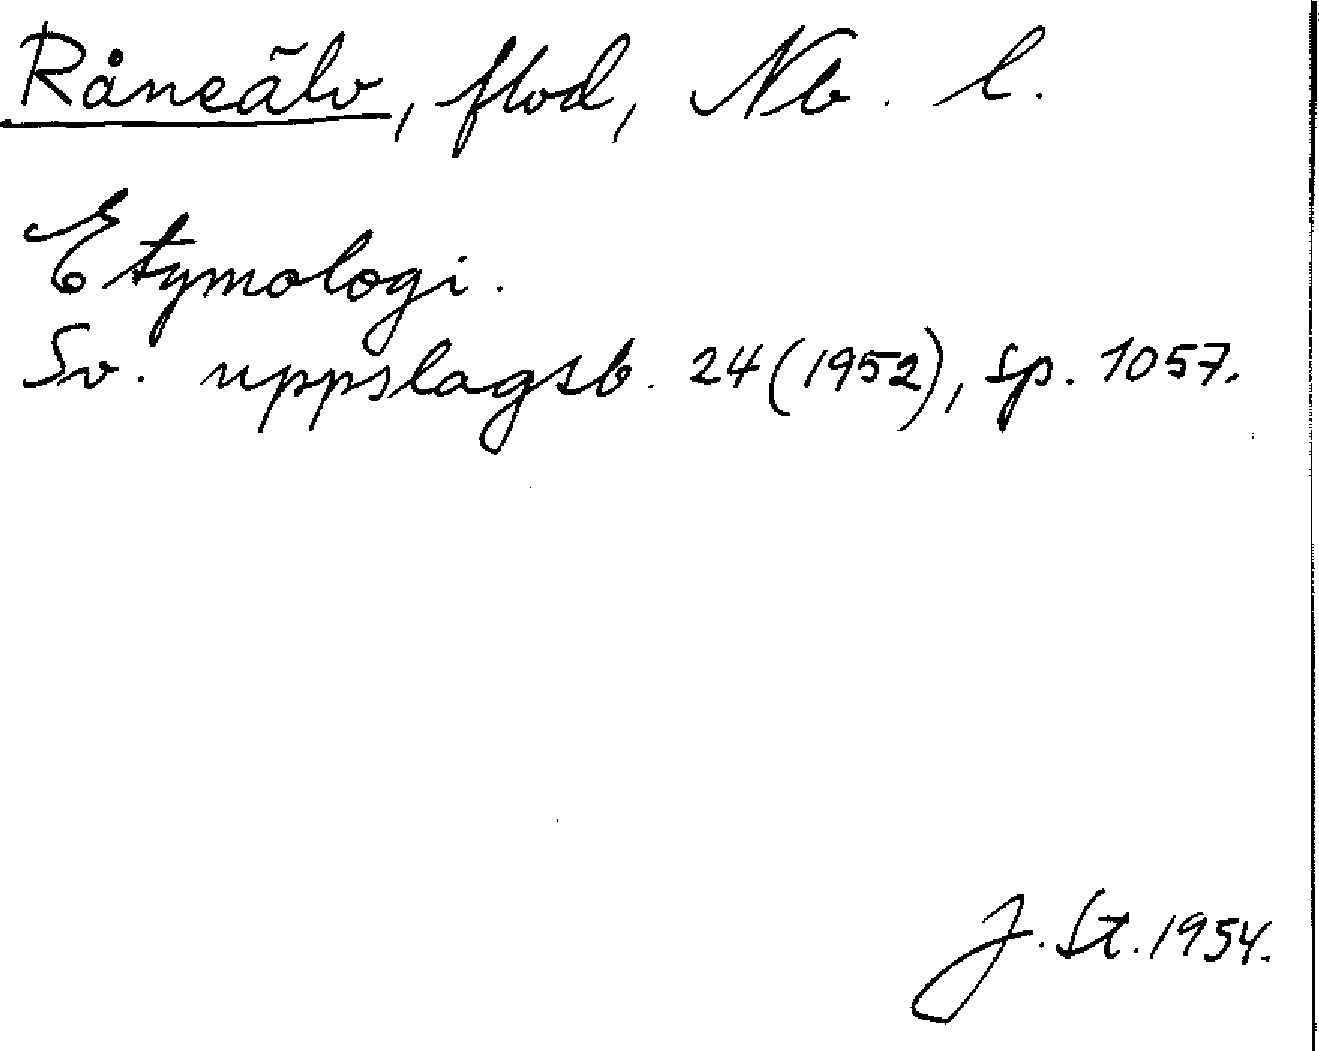 Råneälv, flod, Nb. l.
Etymologi.
Sv. uppslagsb. 24 (1952), sp. 1057.
J. St. 1954.